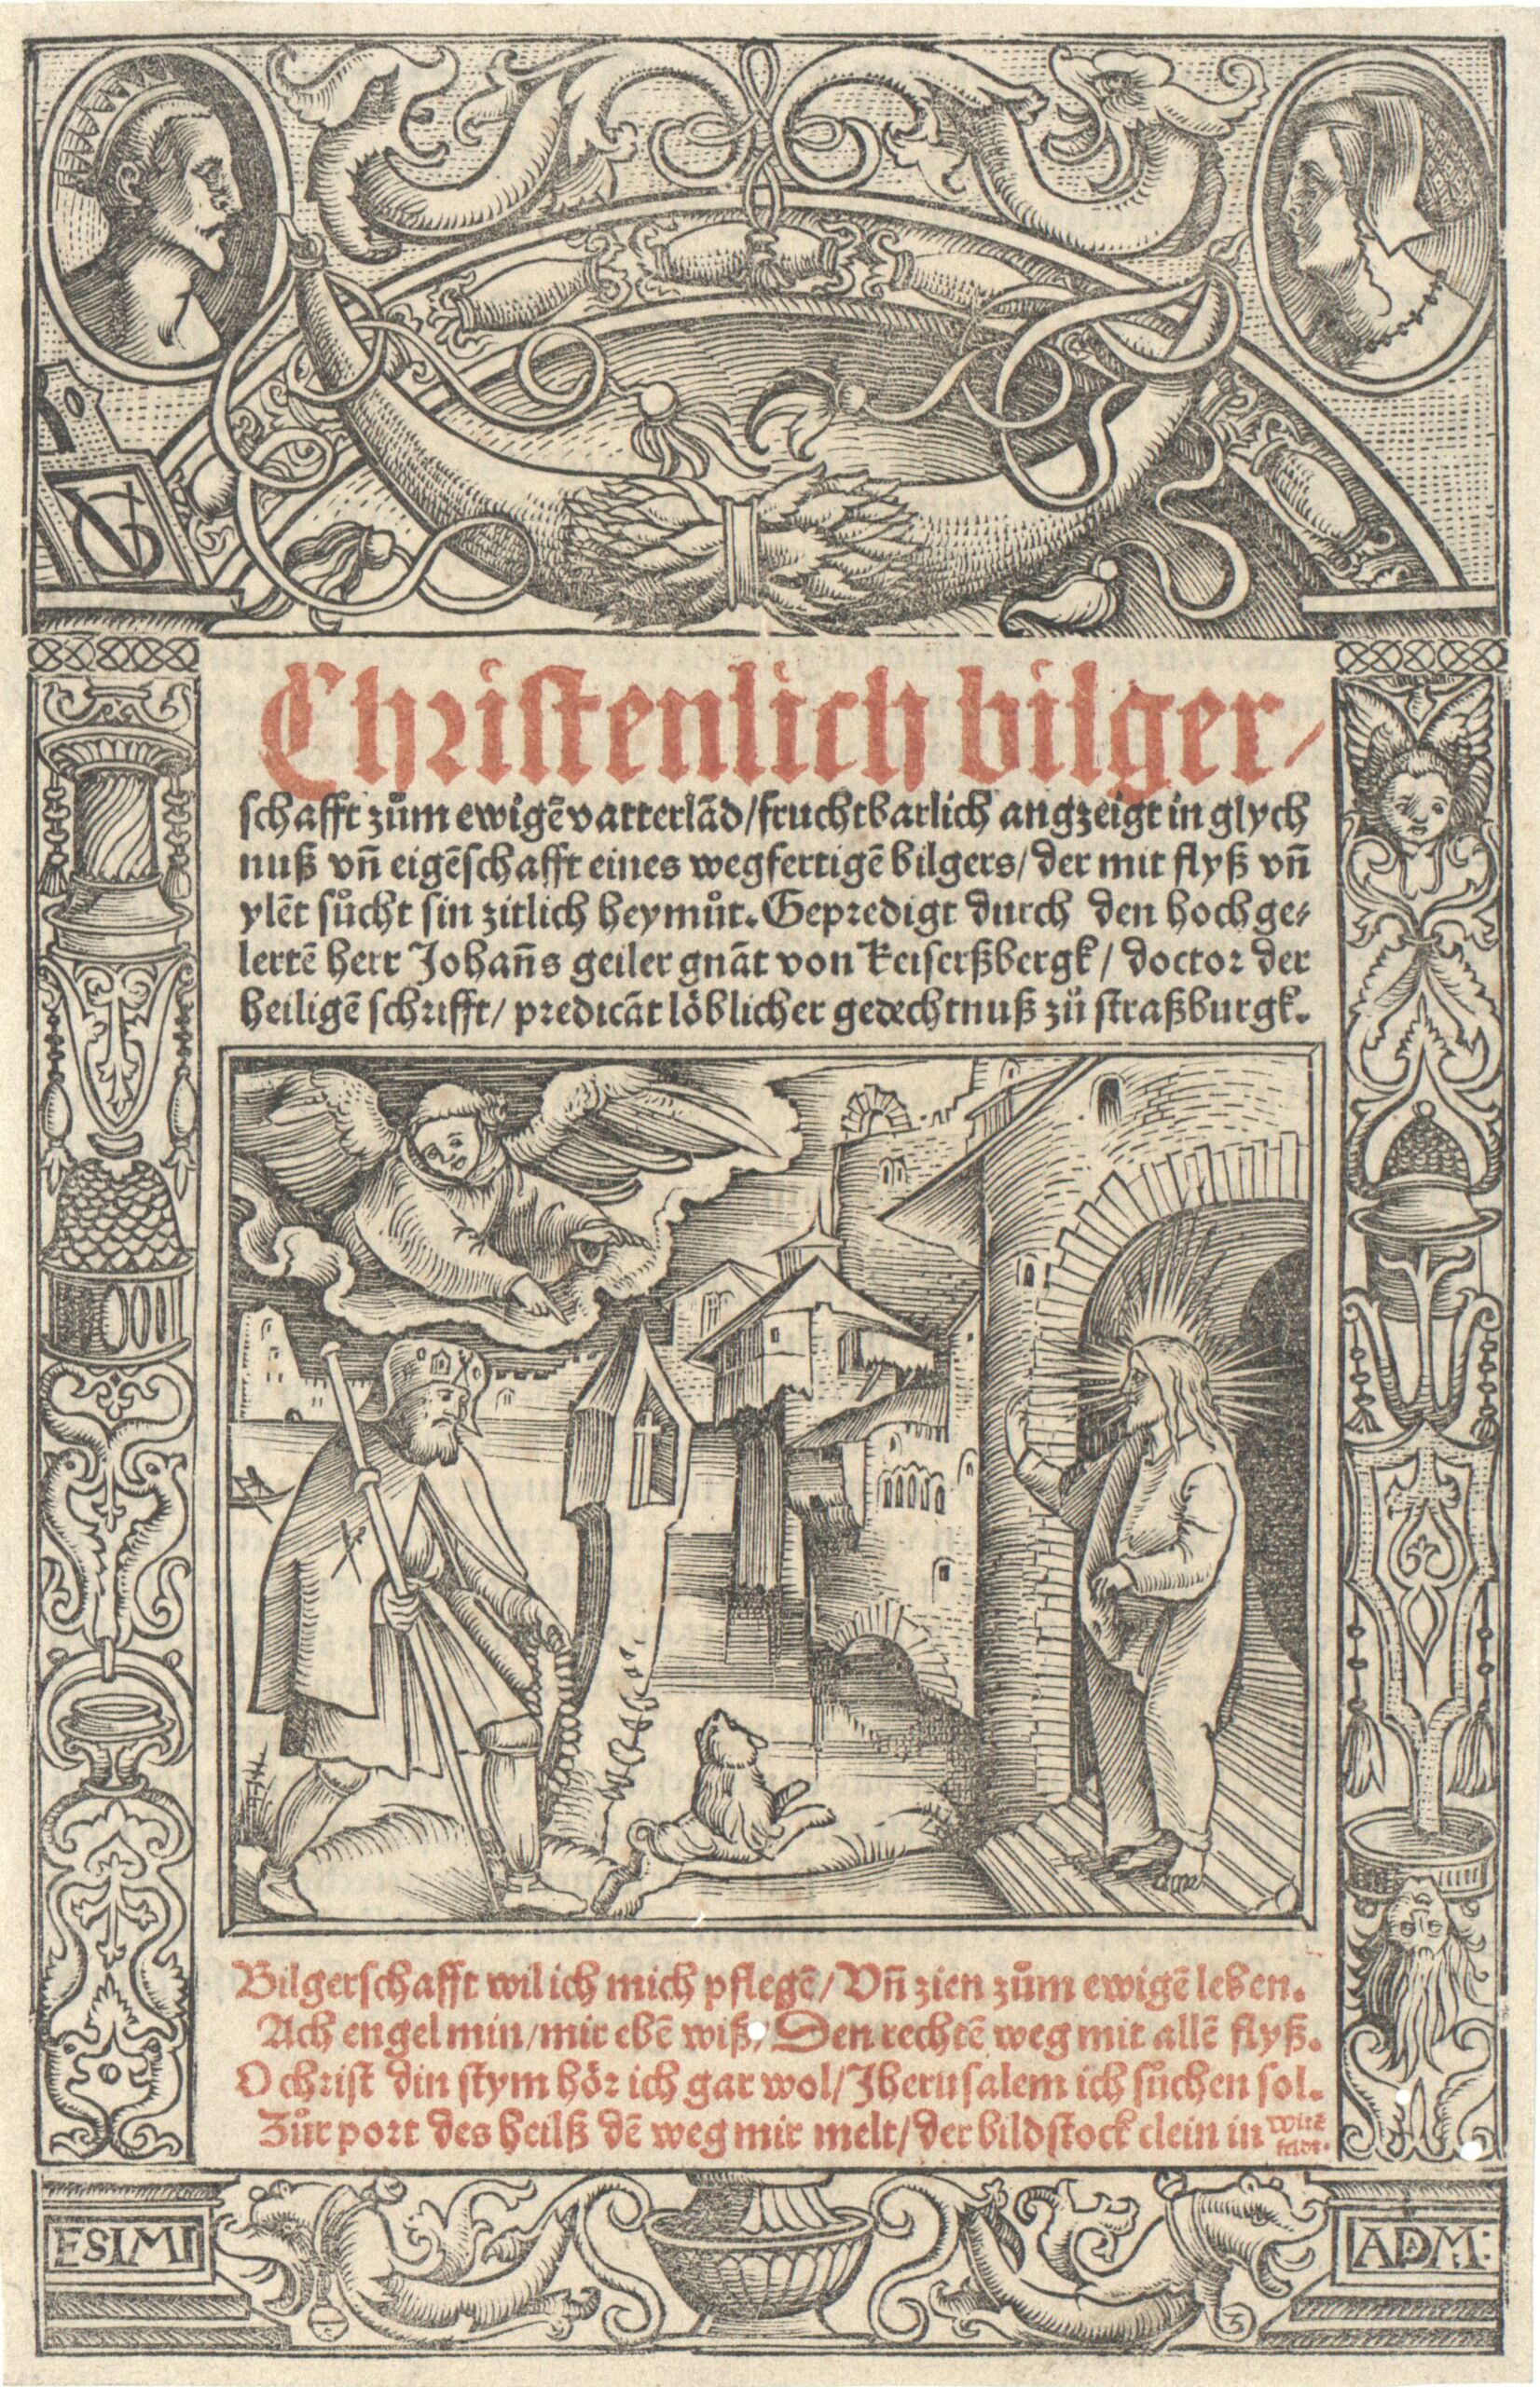 Christenlich bilger/
schafft zům ewigē vatterlād/fruchtbarlich angzeigt in glych
nuß vñ eigēschafft eines wegfertigē bilgers/der mit flyß vñ
ylēt sůcht sin zitlich heymůt. Gepredigt durch den hochge⸗
lertē herr Johañs geiler gnāt von Keiserßbergk/ doctor der
heiligē schrifft/ predicāt löblicher gedechtnuß zů straßburgk.
Bilgerschafft wil ich mich pflegē/Vñ zien zům ewigē leben.
Ach engel min/mir ebē wiß/Den rechtē weg mit allē flyß.
O christ din stym hör ich gar wol/Jherusalem ich sůchen sol.
Zůr port des heilß dē weg mir melt/der bildstock clein in witē
feldt.
ESIMI
ADM: